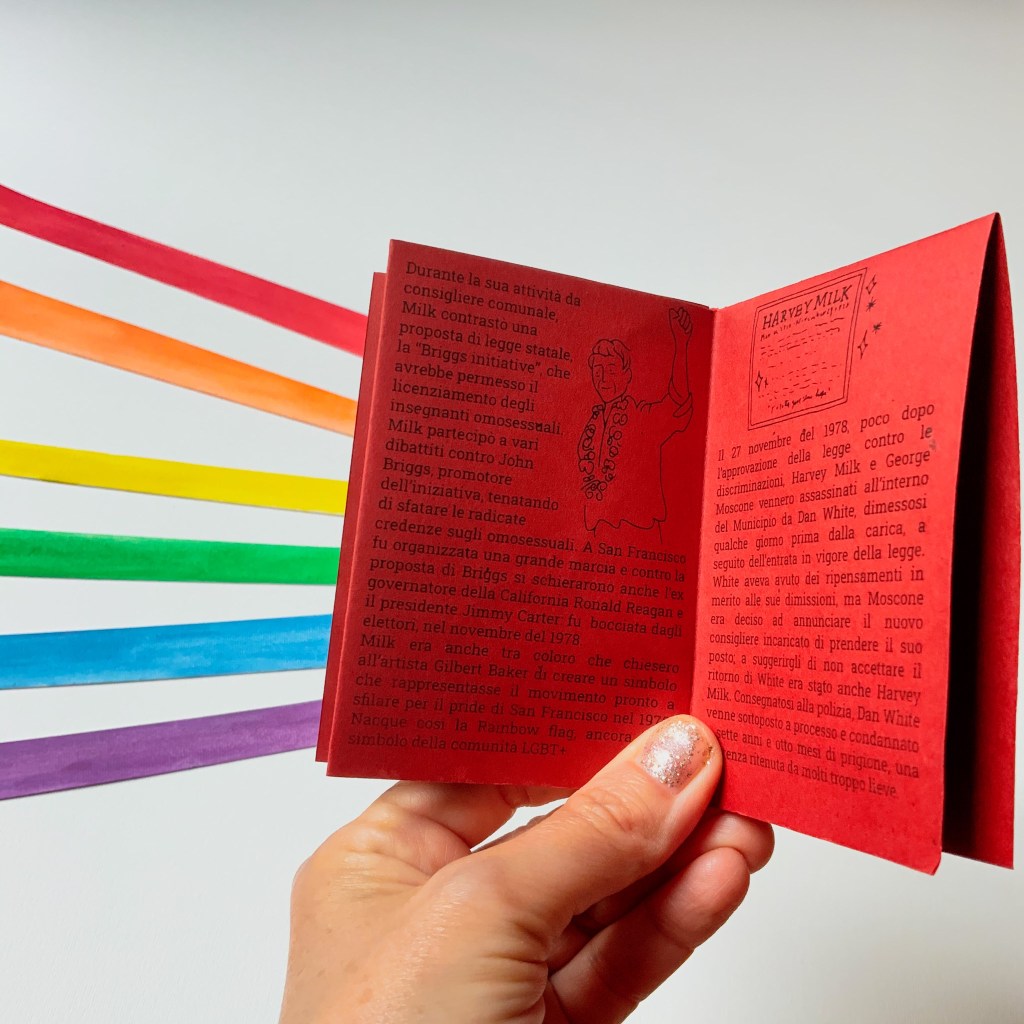 Durante la sua attività da
consigliere comunale,
Milk contrasto una
proposta di legge statale,
la "Briggs initiative", che
avrebbe permesso il
licenziamento degli
insegnanti omosessuali.
Milk partecipò a vari
dibattiti contro John
Briggs, promotore
dell'iniziativa, tenatando
di sfatare le radicate
credenze sugli omosessuali. A San Francisco
fu organizzata una grande marcia e contro la
proposta di Briggs si schierarono anche l'ex
governatore della California Ronald Reagan e
il presidente Jimmy Carter: fu bocciata dagli
elettori, nel novembre del 1978.
Milk era anche tra coloro che chiesero
all'artista Gilbert Baker di creare un simbolo
che rappresentasse il movimento pronto a
sfilare per il pride di San Francisco nel
Nacque così la Rainbow flag, ancora
simbolo della comunità LGBT+
HARVEY MILK
Il 27 novembre del 1978, poco dopo
l'approvazione della legge contro le
discriminazioni, Harvey Milk e George
Moscone vennero assassinati all'interno
del Municipio da Dan White, dimessosi
qualche giorno prima dalla carica, a
seguito dell'entrata in vigore della legge.
White aveva avuto dei ripensamenti in
merito alle sue dimissioni, ma Moscone
era deciso ad annunciare il nuovo
consigliere incaricato di prendere il suo
posto; a suggerirgli di non accettare il
ritorno di White era stato anche Harvey
Milk. Consegnatosi alla polizia, Dan White
venne sottoposto a processo e condannato
sette anni e otto mesi di prigione, una
ritenuta da molti troppo lieve.